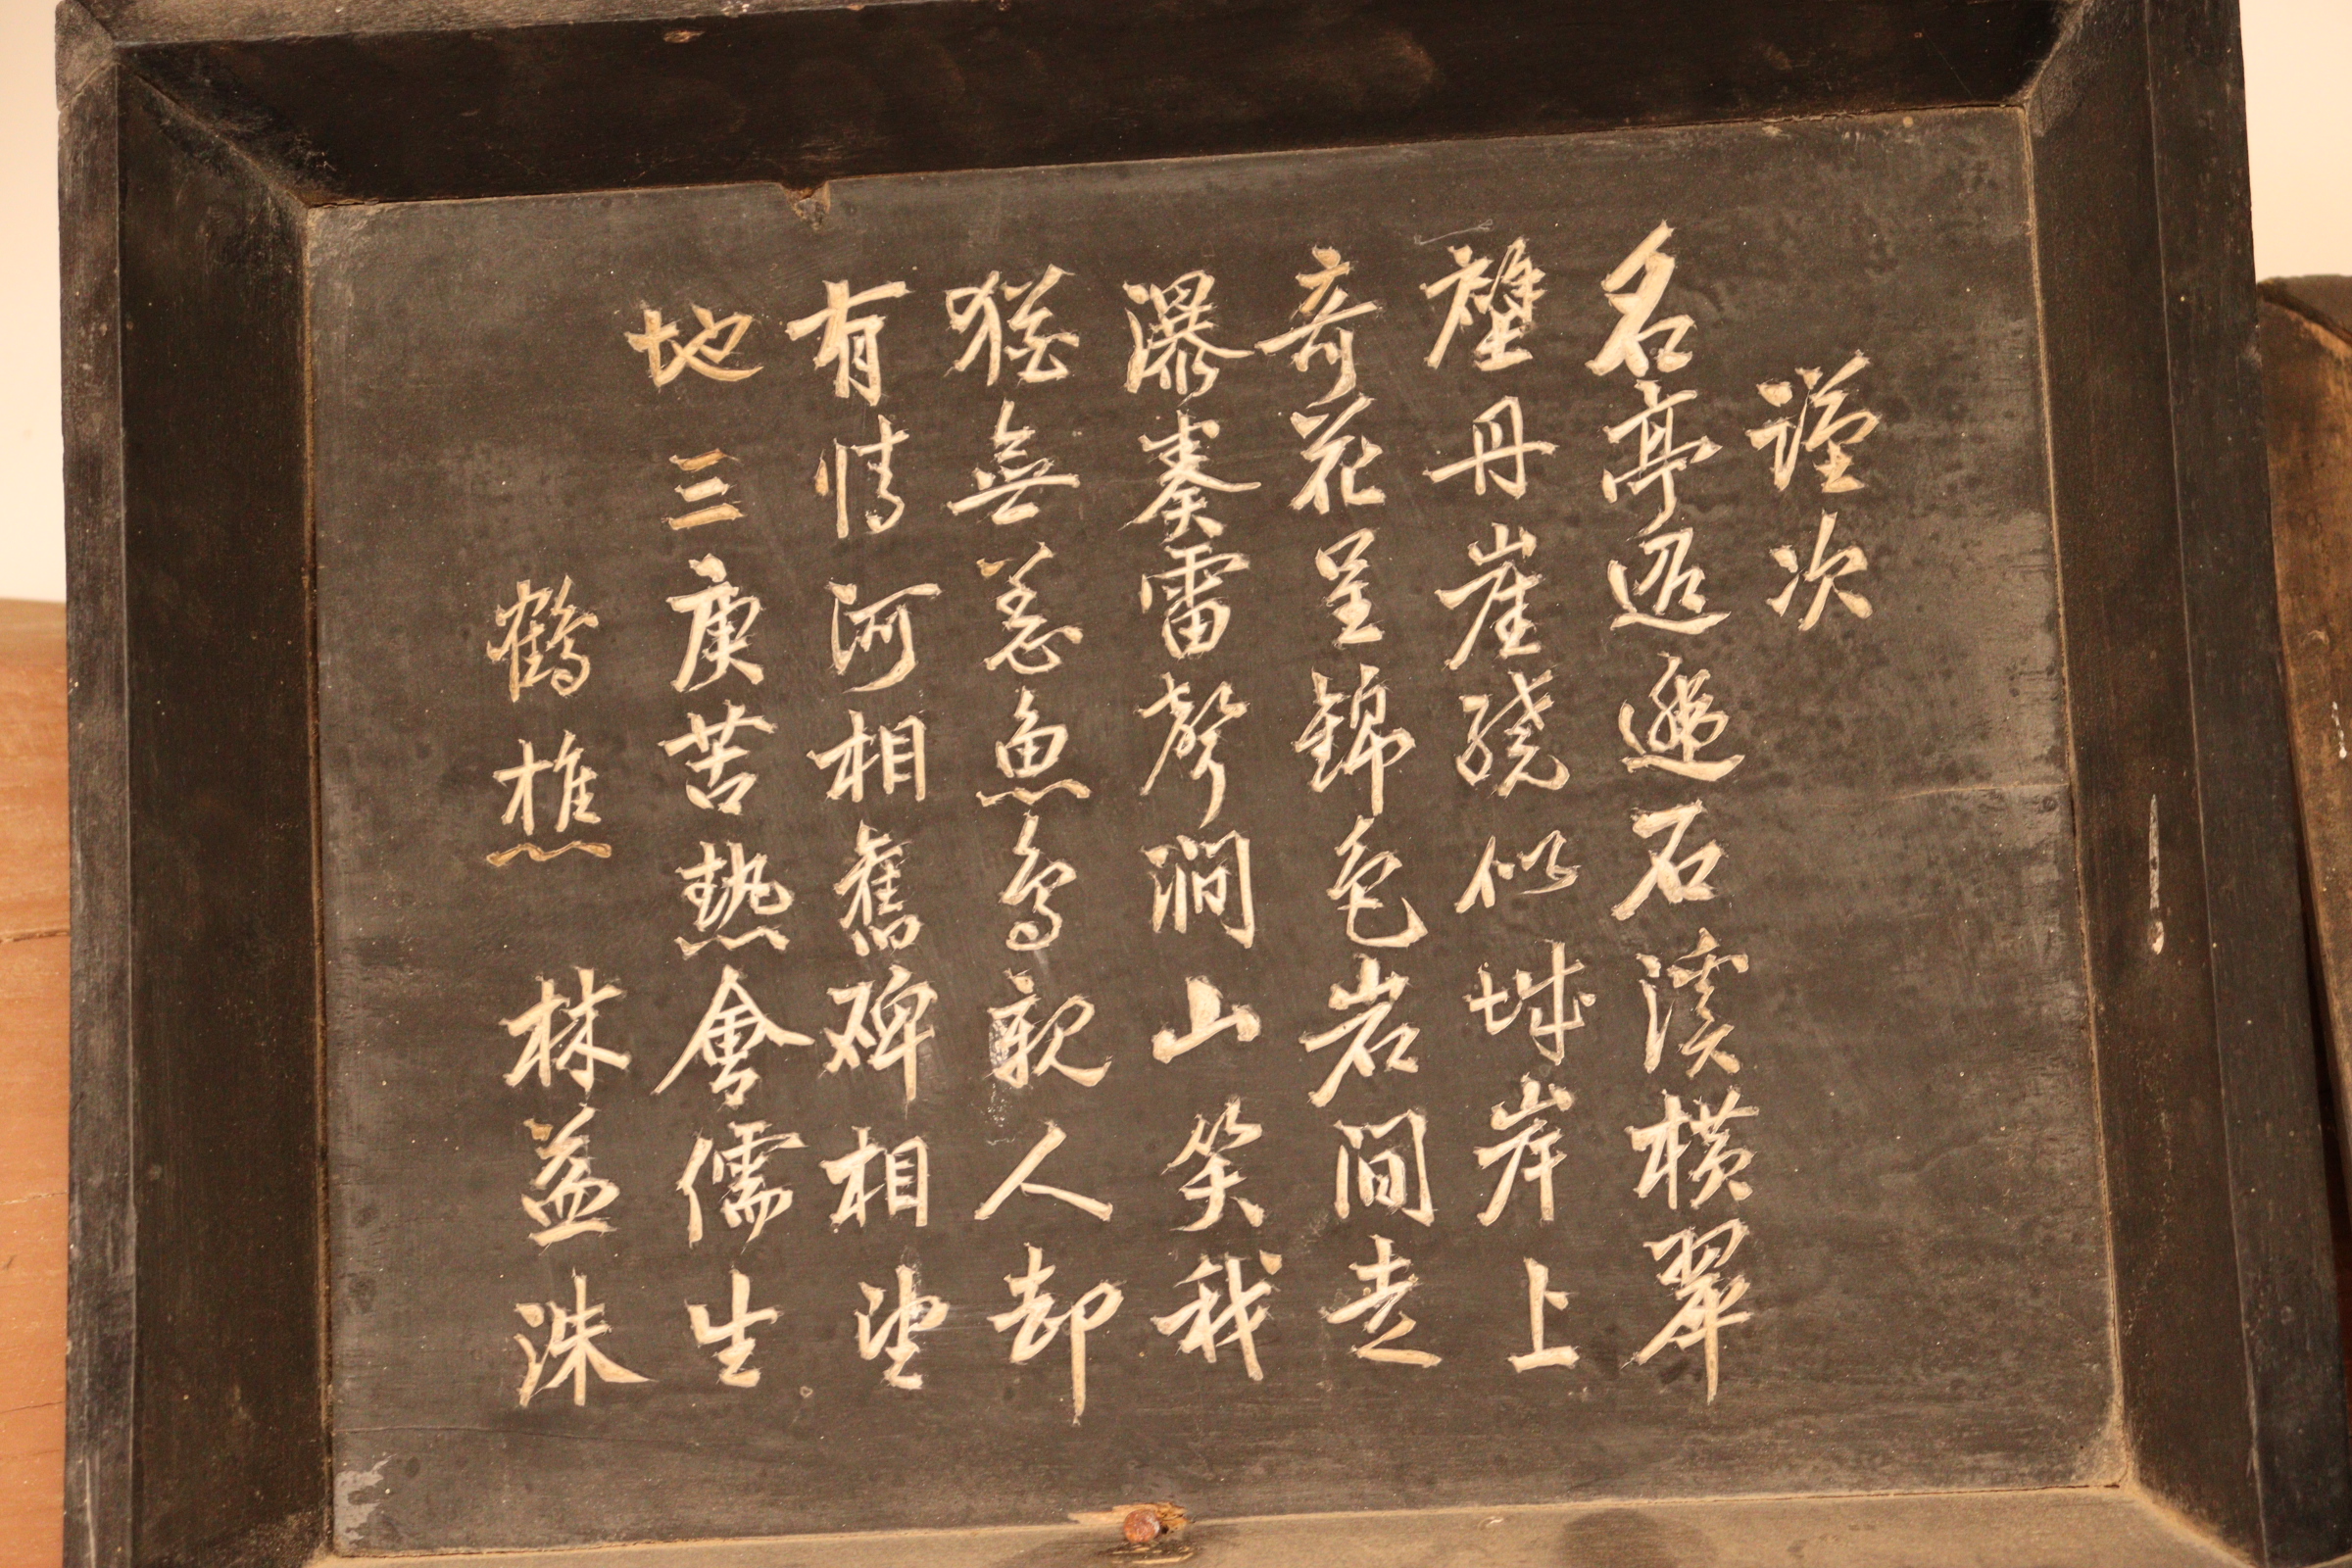 謹次
名亭迢遞石溪横翠
襍丹崖繞似城岸上
奇花呈錦色岩間走
瀑奏雷聲澗山笑我
猶無恙魚鳥親人却
有情河相舊碑相望
地三庚苦熱會儒生
鶴樵 林益洙